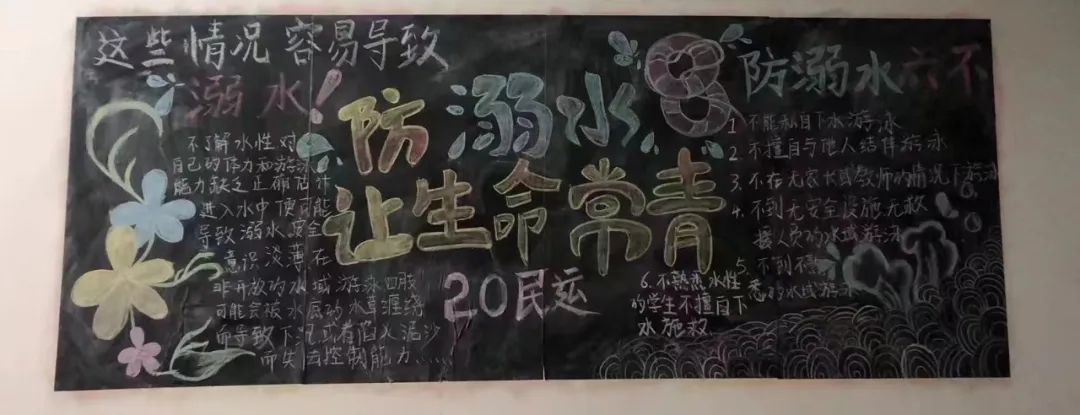 这些情况容易导致
溺水！
不了解水性对
自己的体力和游泳
能力缺乏正确估计
进入水中便可能
导致溺水安全
意识淡薄在
非开放的水域游泳四肢
可能会被水底的水草缠绕
而导致下沉或者陷入泥沙
而失去控制能力……
防溺水
让生命常青
20民运
防溺水六不
1 不能私自下水游泳
2. 不擅自与他人结伴游泳
3. 不在无家长或教师的情况下游泳
4. 不到无安全设施无救
援人员的水域游泳
5. 不到不熟
悉的水域游泳
6. 不熟悉水性
的学生不擅自下
水施救